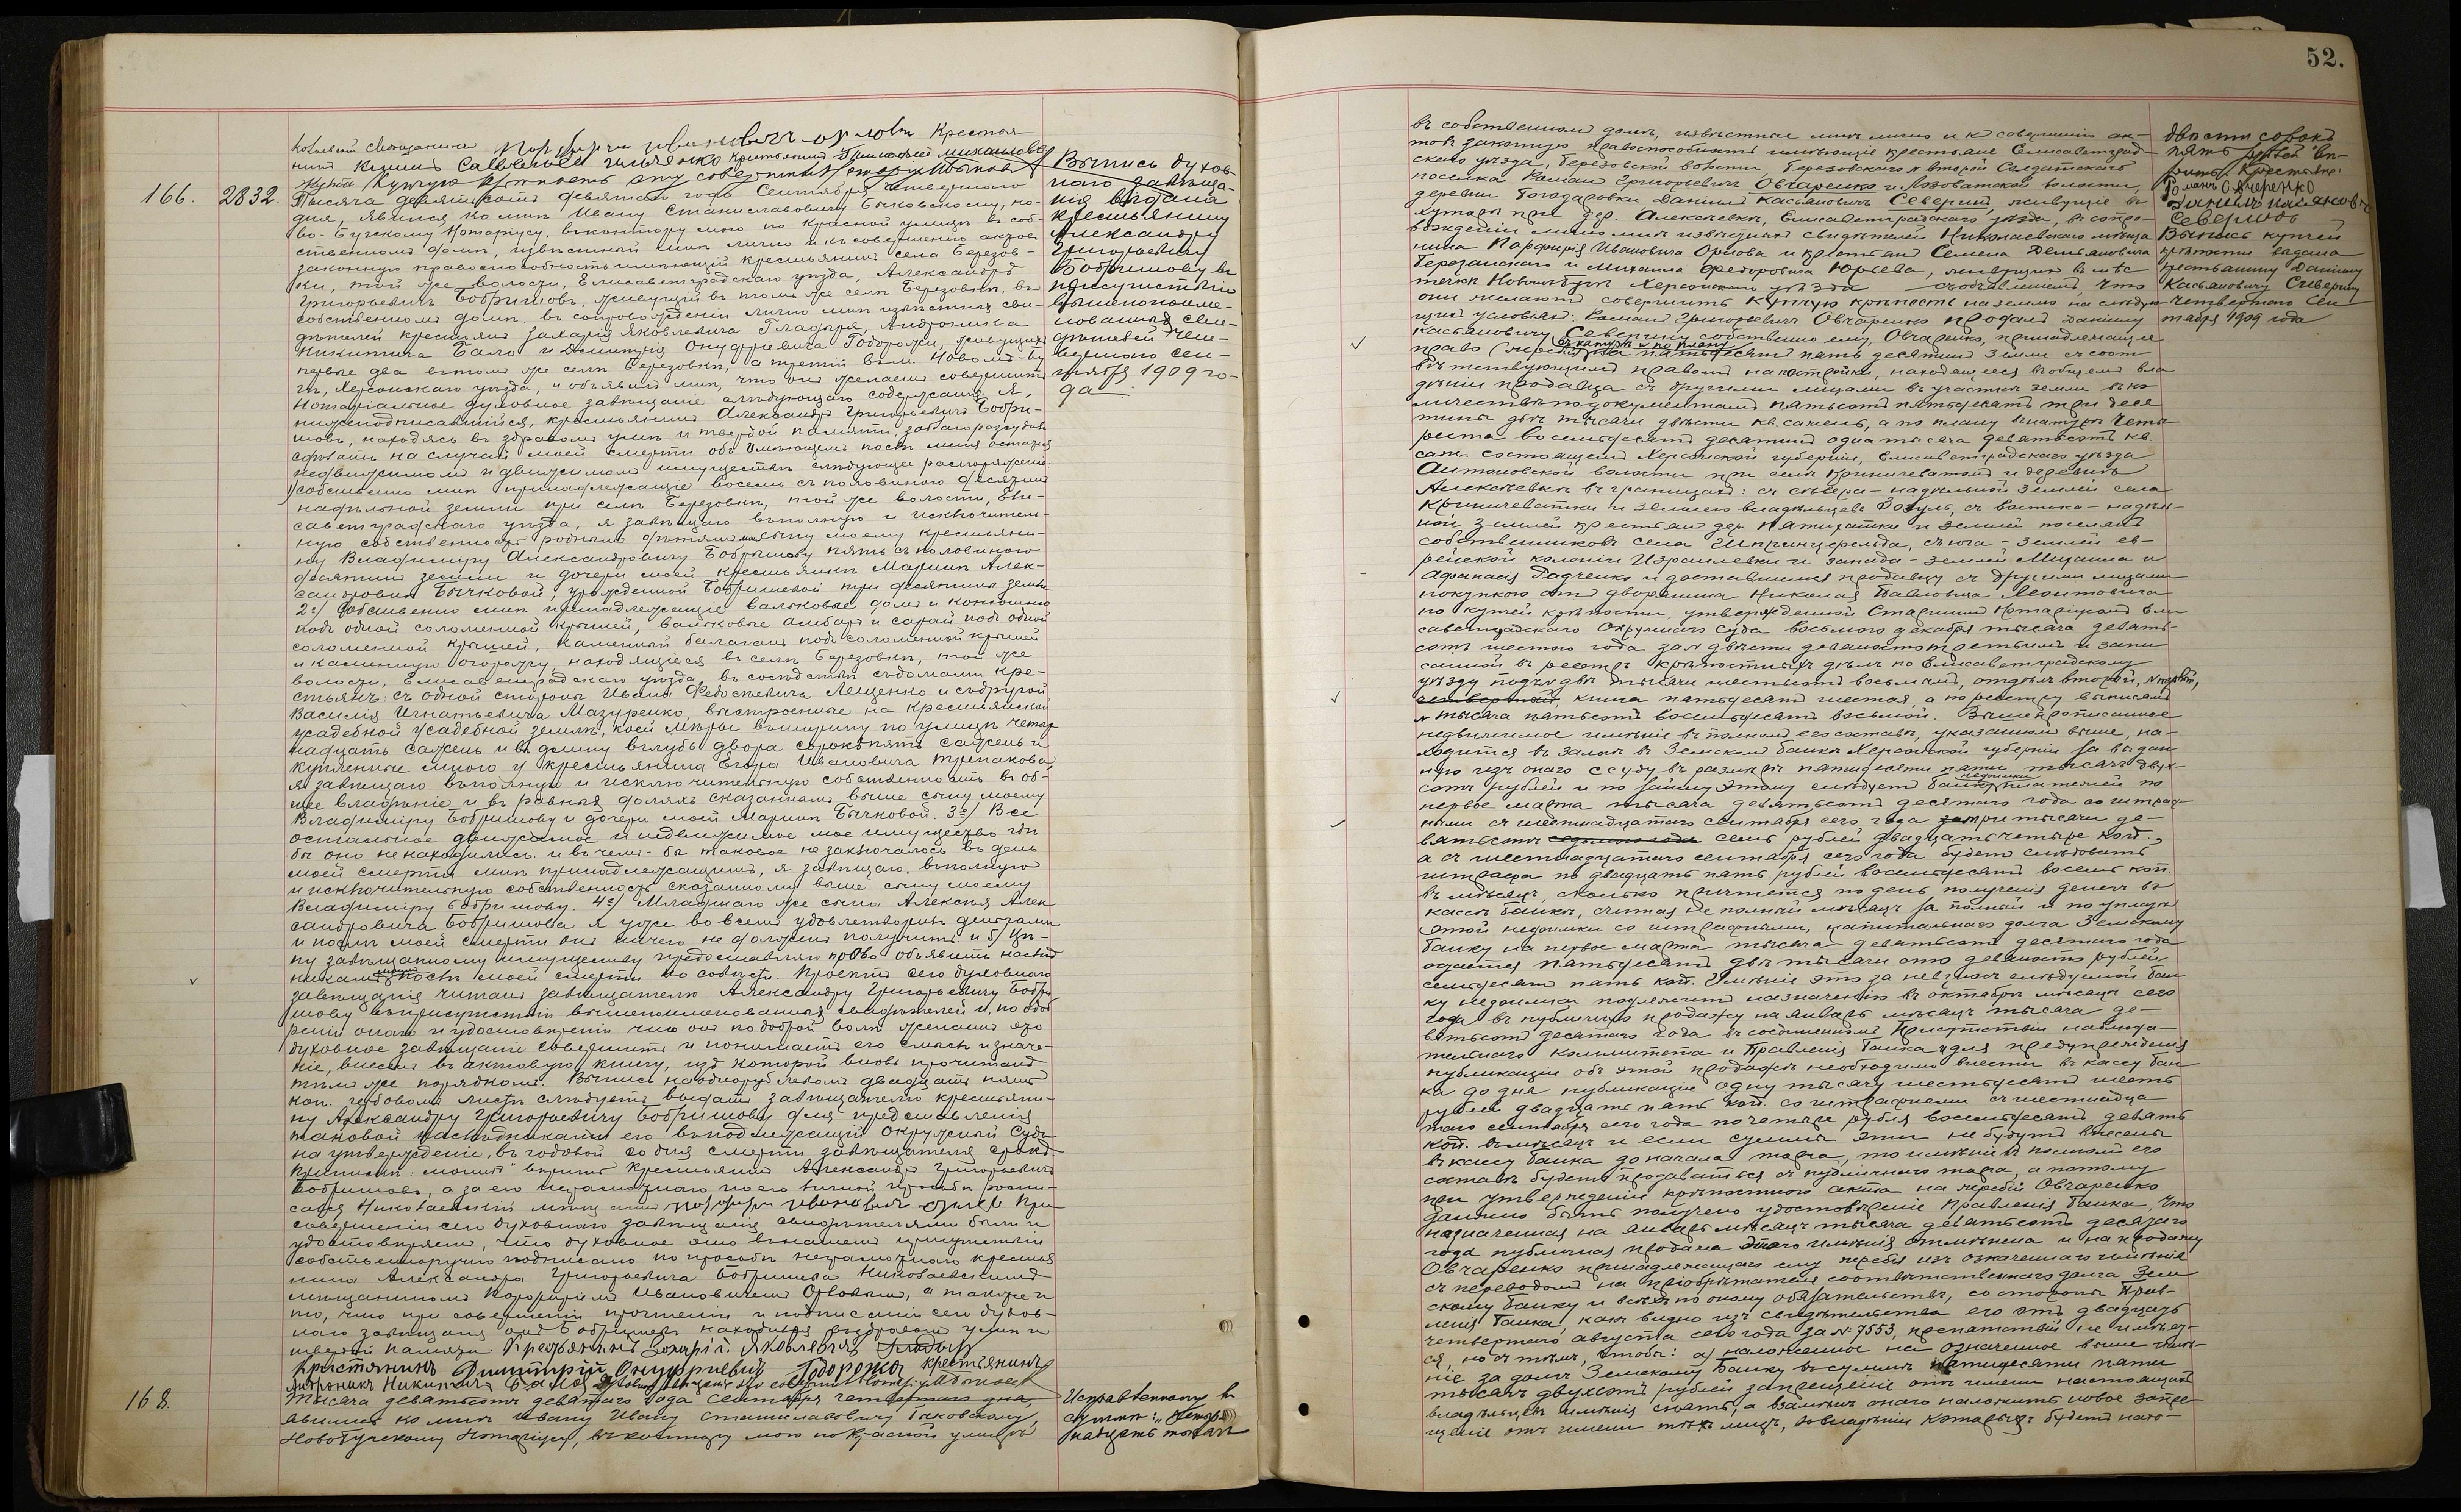 52.
166.
2832.
Тысяча девятьсотъ девятаго года Сентября четвертаго
дня, явился ко мнѣ Ивану Станиславовичу Быковскому, Но-
во-Бугскому Нотаріусу, въ контору мою по Красной улицѣ въ соб-
ственномъ домѣ, извѣстный мнѣ лично и къ совершенію актовъ
законную правоспособность имѣющій крестьянинъ села Березов-
ки, той же волости, Елисаветградскаго уѣзда, Александръ
Григорьевичъ Бобришовъ, живущій въ томъ же селѣ Березовкѣ, въ
собственномъ домѣ, въ сопровожденіи лично мнѣ извѣстныхъ сви-
дѣтелей крестьянъ Захарія Яковлевича Гладыря, Андроника
Никитича Бало и Димитрія Онуфріевича Годорожи, живущихъ
первые два въ томъ же селѣ Березовкѣ, а третій въ м. Новомъ-Бу-
гѣ, Херсонскаго уѣзда, и объявилъ мнѣ, что онъ желаетъ совершить
нотаріальное духовное завѣщаніе слѣдующаго содержанія: Я,
нижеподписавшійся, крестьянинъ Александръ Григорьевичъ Бобри-
шовъ, находясь въ здравомъ умѣ и твердой памяти, заблагоразсудилъ
сдѣлать на случай моей смерти объ имѣющемъ послѣ меня остаться
недвижимомъ и движимомъ имуществѣ слѣдующее распоряженіе:
1) собственно мнѣ принадлежащіе восемь съ половиною десятинъ
надѣльной земли при селѣ Березовкѣ, той же волости, Ели-
саветградскаго уѣзда, я завѣщаю въ полную и исключитель-
ную собственность роднымъ дѣтямъ моимъ: сыну моему крестьяни-
ну Владиміру Александровичу Бобришову пять съ половиною
десятинъ земли и дочери моей крестьянкѣ Маріи Алек-
сандровнѣ Бычковой, урожденной Бобришевой три десятины земли
2) Собственно мнѣ принадлежащіе вальковые домъ и конюшню
подъ одной соломенной крышей, вальковые амбаръ и сарай подъ одной
соломенной крышей, каменный балаганъ подъ соломенной крышей
и каменную огорожу, находящіеся въ селѣ Березовкѣ, той же
волости, Елисаветградскаго уѣзда, въ сосѣдствѣ съ домами кре-
стьянъ: съ одной стороны Ивана Федосѣевича Лещенко и съ другой
Василія Игнатьевича Мазуренко, выстроенные на крестьянской
усадебной усадебной землѣ, коей мѣры въ ширину по улицѣ четыр
надцать сажень и въ длину вглубь двора сорокъ пять сажень и
купленные мною у крестьянина Егора Ивановича Трепакова,
я завѣщаю въ полную и исключительную собственность въ об-
щее владѣніе и въ равныхъ доляхъ сказаннымъ выше сыну моему
Владиміру Бобришову и дочери моей Маріи Бычковой. 3) Все
остальное движимое и недвижимое мое имущество гдѣ
бы оно не находилось и въ чемъ-бы таковое не заключалось въ день
моей смерти мнѣ принадлежащимъ, я завѣщаю въ полную
и исключительную собственность сказанному выше сыну моему
Владиміру Бобришову. 4) Младшаго же сына Алексѣя Алек
сандровича Бобришова я уже во всемъ удовлетворилъ деньгами
и послѣ моей смерти онъ ничего не долженъ получить и 5) Цѣ-
ну завѣщанному имуществу предоставляю право объявить наслѣд
никамъ моимъ послѣ моей смерти по совѣсти. Проектъ сего духовнаго
завѣщанія читанъ завѣщателю Александру Григорьевичу Бобри
шову въ присутствіи вышепоименованныхъ свидѣтелей и, по одоб
реніи онаго и удостовѣреніи, что онъ по доброй волѣ желаетъ это
духовное завѣщаніе совершить и понимаетъ его смыслъ и значе-
ніе, внесенъ въ актовую книгу, изъ которой вновь прочитанъ
тѣмъ же порядкомъ. Выпись на однорублевомъ двадцать пять
коп. гербовомъ листѣ слѣдуетъ выдать завѣщателю крестьяни-
ну Александру Григорьевичу Бобришову для представленія
таковой наслѣдниками его въ подлежащій Окружный Судъ
на утвержденіе, въ годовой со дня смерти завѣщателя срокъ.
Крестьянинъ Александръ Григорьевичъ
Бобришовъ, а за его неграмотнаго по его личной просьбѣ роспи-
сался Николаевскій мѣщанинъ Порфирій Ивановичъ Орловъ При
совершеніи сего духовнаго завѣщанія свидѣтелями были и
удостовѣряемъ, что духовное это въ нашемъ присутствіи
собственноручно подписано по просьбѣ неграмотнаго крестья
нина Александра Григорьевича Бобришова Николаевскимъ
мѣщаниномъ Порфиріемъ Ивановичемъ Орловымъ, а также и
то, что при совершеніи, прочтеніи и подписаніи сего духов-
наго завѣщанія онъ Бобришовъ находился въ здравомъ умѣ и
твердой памяти. Крестьянинъ Захарій Яковлевичъ Гладырь
Крестьянинъ Димитрій Онуфріевичъ Годорожа крестьянинъ
Андроникъ Никитичъ Бало
Выпись духов-
наго завѣща-
нія выдана
крестьянину
Александру
Григорьевичу
Бобришову въ
присутствіи
вышепоиме-
нованныхъ сви-
дѣтелей чет-
вертаго сен-
тября 1909 го-
да
168.
Тысяча девятьсотъ девятаго года Сентября четвертаго дня,
явились ко мнѣ Ивану Ивану Станиславовичу Быковскому,
Новобугскому Нотаріусу, въ контору мою по Красной улицѣ
въ собственномъ домѣ, извѣстные мнѣ лично и къ совершенію ак-
товъ законную правоспособность имѣющіе крестьяне Елисаветград-
скаго уѣзда, Березовской волости
поселка Романъ Григорьевичъ Овчаренко и Лозоватской волости,
деревни Богодаровки Даніилъ Касьяновичъ Северинъ живущіе въ
хуторѣ при дер. Алексѣевкѣ, Елисаветградскаго уѣзда, въ сопро-
вожденіи лично мнѣ извѣстныхъ свидѣтелей Николаевскаго мѣщан
нина Порфирія Ивановича Орлова и крестьянъ Семена Демьяновича
Березанскаго и Михаила Федоровича Юрьева, живущихъ въ мѣс
течкѣ Новомъ Бугѣ Херсонскаго уѣзда съ объявленіемъ, что
они желаютъ совершить купчую крѣпость на землю на слѣдую
щихъ условіяхъ: Романъ Григорьевичъ Овчаренко продалъ Даніилу
Касьяновичу Северину собственно ему, Овчаренко, принадлежащее
право
въ натурѣ и по плану
на пятьдесятъ пять десятинъ земли съ соот
вѣтствующимъ правомъ на постройки, находящееся въ общемъ вла
дѣніи продавца съ другими лицами въ участкѣ земли въ ко
личествѣ по документамъ пятьсотъ пятьдесятъ три деся
тины двѣ тысячи двѣсти кв. сажень, а по плану въ натурѣ четы
реста восемьдесятъ десятинъ одна тысяча девятьсотъ кв.
саж. состоящемъ Херсонской губерніи, Елисаветградскаго уѣзда
Антоновской волости при селѣ Криничеватомъ и деревнѣ
Алексѣевкѣ въ границахъ: съ сѣвера - надѣльной землей села
Криничеватки и землею владѣльцевъ съ востока - надѣль-
ной землей крестьянъ дер. Пятихатки и землей поселянъ
собственниковъ села съ юга - землей ев-
рейской колоніи Израилевки и запада - землей Михаила и
Афанасія Радченко и доставшемся продавцу съ другими лицами
покупкою отъ дворянина Николая Павловича Леонтовича
по купчей крѣпости, утвержденной Старшимъ Нотаріусомъ Ели
саветградскаго Окружнаго Суда восьмого декабря тысяча девять-
сотъ шестого года за № двѣсти девяносто третьимъ и запи
санной въ реестръ крѣпостныхъ дѣлъ по Елисаветградскому
уѣзду подъ № двѣ тысячи шестьсотъ восьмымъ,
книга пятьдесятъ шестая, а по реестру выписей
№ тысяча пятьсотъ восемьдесятъ восьмой. Вышеописанное
недвижимое имѣніе въ полномъ его составѣ, указанномъ выше, на-
ходится въ залогѣ въ Земскомъ банкѣ Херсонской губерніи за выдан
ную изъ онаго ссуду въ размѣрѣ пятидесяти пяти тысячъ двух-
сотъ рублей и по займу этому слѣдуетъ банку недоимки платежей по
первое марта тысяча девятьсотъ десятаго года со штраф
ными съ шестнадцатаго сентября сего года три тысячи де-
вятьсотъ семь рублей двадцать четыре коп.,
а съ шестнадцатаго сентября сего года будетъ слѣдовать
штрафа по двадцать пять рублей восемьдесятъ восемь коп.
въ мѣсяцъ, сколько причтется по день полученія денегъ въ
кассѣ банка, считая не полный мѣсяцъ за полный и по уплатѣ
этой недоимки со штрафными, капитальнаго долга Земскому
банку на первое марта тысяча девятьсотъ десятаго года
остается пятьдесятъ двѣ тысячи сто девяносто рублей
семьдесятъ пять коп. Имѣніе это за невзносъ слѣдуемой бан
ку недоимки подлежитъ назначенію въ октябрѣ мѣсяцѣ сего
года въ публичную продажу на январь мѣсяцъ тысяча де-
вятьсотъ десятаго года въ соединенномъ Присутствіи наблюда-
тельнаго комитета и Правленія банка и для предупрежденія
публикаціи объ этой продажѣ необходимо внести въ кассу бан
ка до дня публикаціи одну тысячу шестьдесятъ шесть
рублей двадцать пять коп. со штрафными съ шестнадца
таго сентября сего года по четыре рубля восемьдесятъ девять
коп. въ мѣсяцъ и если суммы эти не будутъ внесены
въ кассу банка до начала торга, то имѣніе въ полномъ его
составѣ будетъ продаваться съ публичнаго торга, а потому
при утвержденіи крѣпостнаго акта на жеребій Овчаренко
должно быть получено удостовѣреніе Правленія банка, что
назначенная на январь мѣсяцъ тысяча девятьсотъ десятаго
года публичная продажа этого имѣнія отмѣнена и на продажу
Овчаренко принадлежащаго ему жребія изъ означеннаго имѣнія
съ переводомъ на пріобрѣтателя соотвѣтственнаго долга Зем
скому банку и всѣхъ по оному обязательствъ, со стороны Прав-
ленія банка, какъ видно изъ свидѣтельства его отъ двадцать
четвертаго августа сего года за № 7553, препятствій не имѣет-
ся, но съ тѣмъ, чтобы: а) наложенное на означенное выше имѣ-
ніе за долгъ Земскому банку въ суммѣ пятидесяти пяти
тысячъ двухсотъ рублей запрещеніе отъ имени настоящихъ
владѣльцевъ имѣнія снять, а взамѣнъ онаго наложить новое запре-
щеніе отъ имени тѣхъ лицъ, во владѣніи которыхъ будетъ нахо-
двѣсти сорокъ
пять рублей вѣ-
рить. Крестьяне:
Романъ Овчеренко
Даніилъ Касяновъ
Северинъ
Выпись купчей
крѣпости выдана
крестьянину Даніилу
Касьяновичу Северину
четвертаго Сен
тября 1909 года